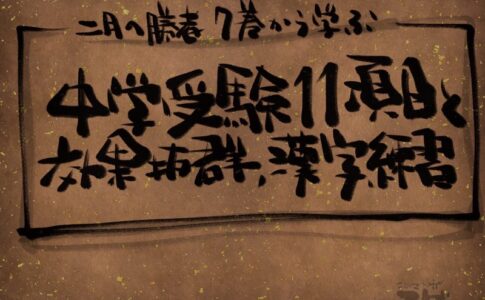 二月の勝者 7巻から学ぶ
中学受験11項目と
効果抜群、漢字練習